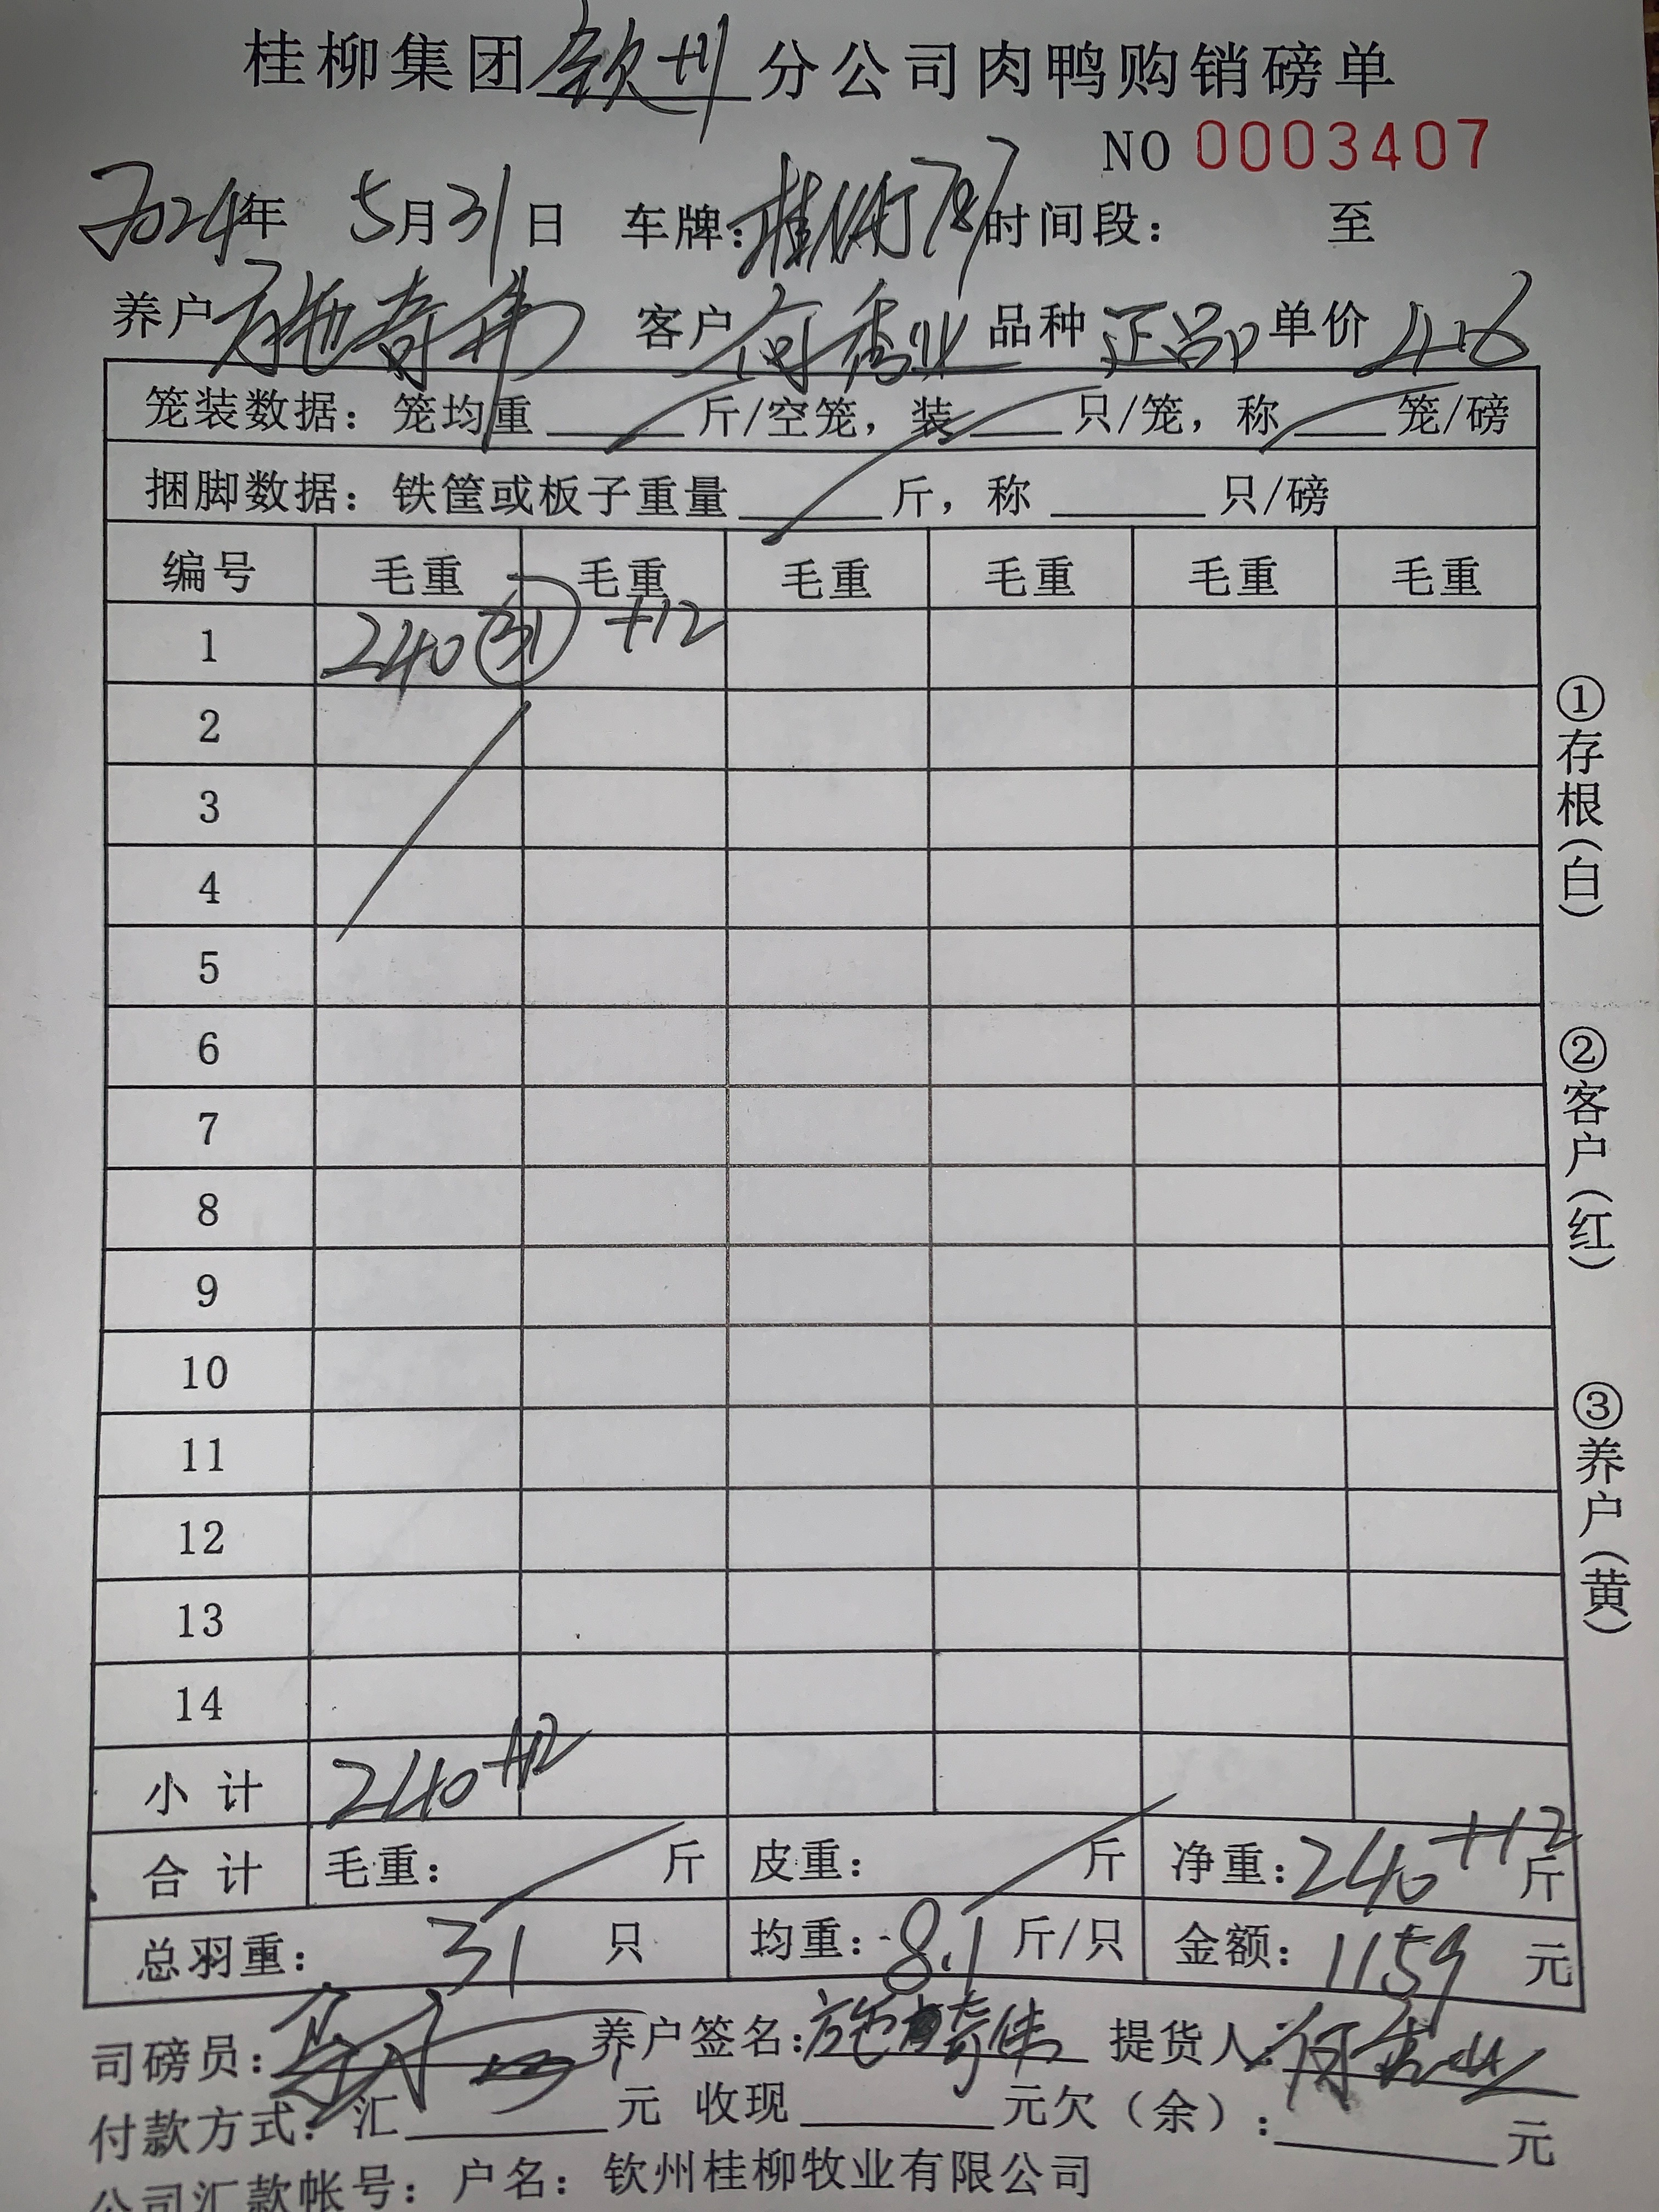 桂柳集团钦州分公司肉鸭购销磅单
NO 0003407
2024年 5月31日 车牌:桂 787 时间段: 至
养户 施奇伟 客户 何秀业 品种 正品 单价 4.6
笼装数据: 笼均重____斤/空笼, 装____只/笼, 称____笼/磅
捆脚数据: 铁筐或板子重量____斤, 称____只/磅
编号 毛重 毛重 毛重 毛重 毛重 毛重
1 240 (31) +12
2
3
4
5
6
7
8
9
10
11
12
13
14
小 计 240+12
合 计 毛重: 斤 皮重: 斤 净重: 240+12 斤
总羽重: 31 只 均重: 8.1 斤/只 金额: 1159 元
司磅员: 养户签名: 施奇伟 提货人: 何秀业
付款方式: 汇____元 收现____元欠(余): ____元
公司汇款帐号: 户名: 钦州桂柳牧业有限公司
①存根(白)
②客户(红)
③养户(黄)